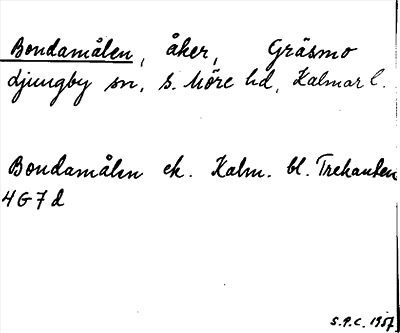 Bondamålen, åker, Gräsmo
Ljungby sn, S. Möre hd, Kalmar l.
Bondamålen ek. Kalm. bl. Trekanten
4G7d
S.P.C. 1957